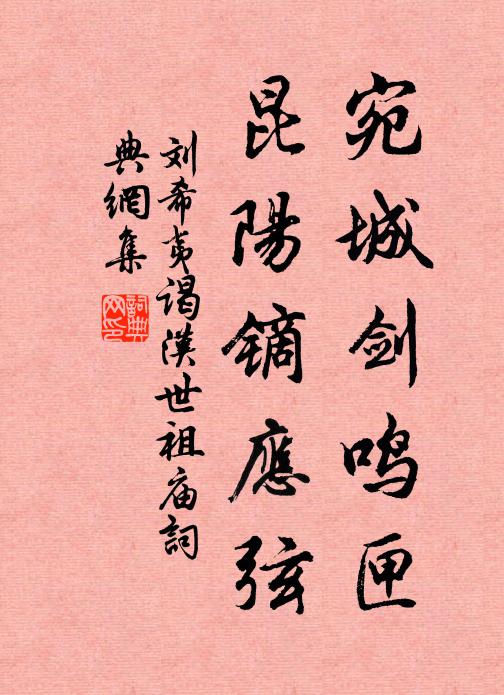 宛城剑鸣匣
昆陽镝應弦
刘希夷谒漢世祖庙詞
典網集
詞典网印